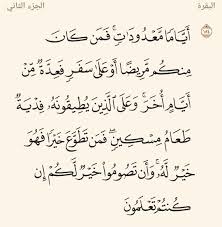 البقرة
الجزء الثاني
أَيَّامًا مَّعْدُودَاتٍ ۚ فَمَن كَانَ
مِنكُم مَّرِيضًا أَوْ عَلَىٰ سَفَرٍ فَعِدَّةٌ مِّنْ
أَيَّامٍ أُخَرَ ۚ وَعَلَى الَّذِينَ يُطِيقُونَهُ فِدْيَةٌ
طَعَامُ مِسْكِينٍ ۖ فَمَن تَطَوَّعَ خَيْرًا فَهُوَ
خَيْرٌ لَّهُ ۚ وَأَن تَصُومُوا خَيْرٌ لَّكُمْ ۖ إِن
كُنتُمْ تَعْلَمُونَ